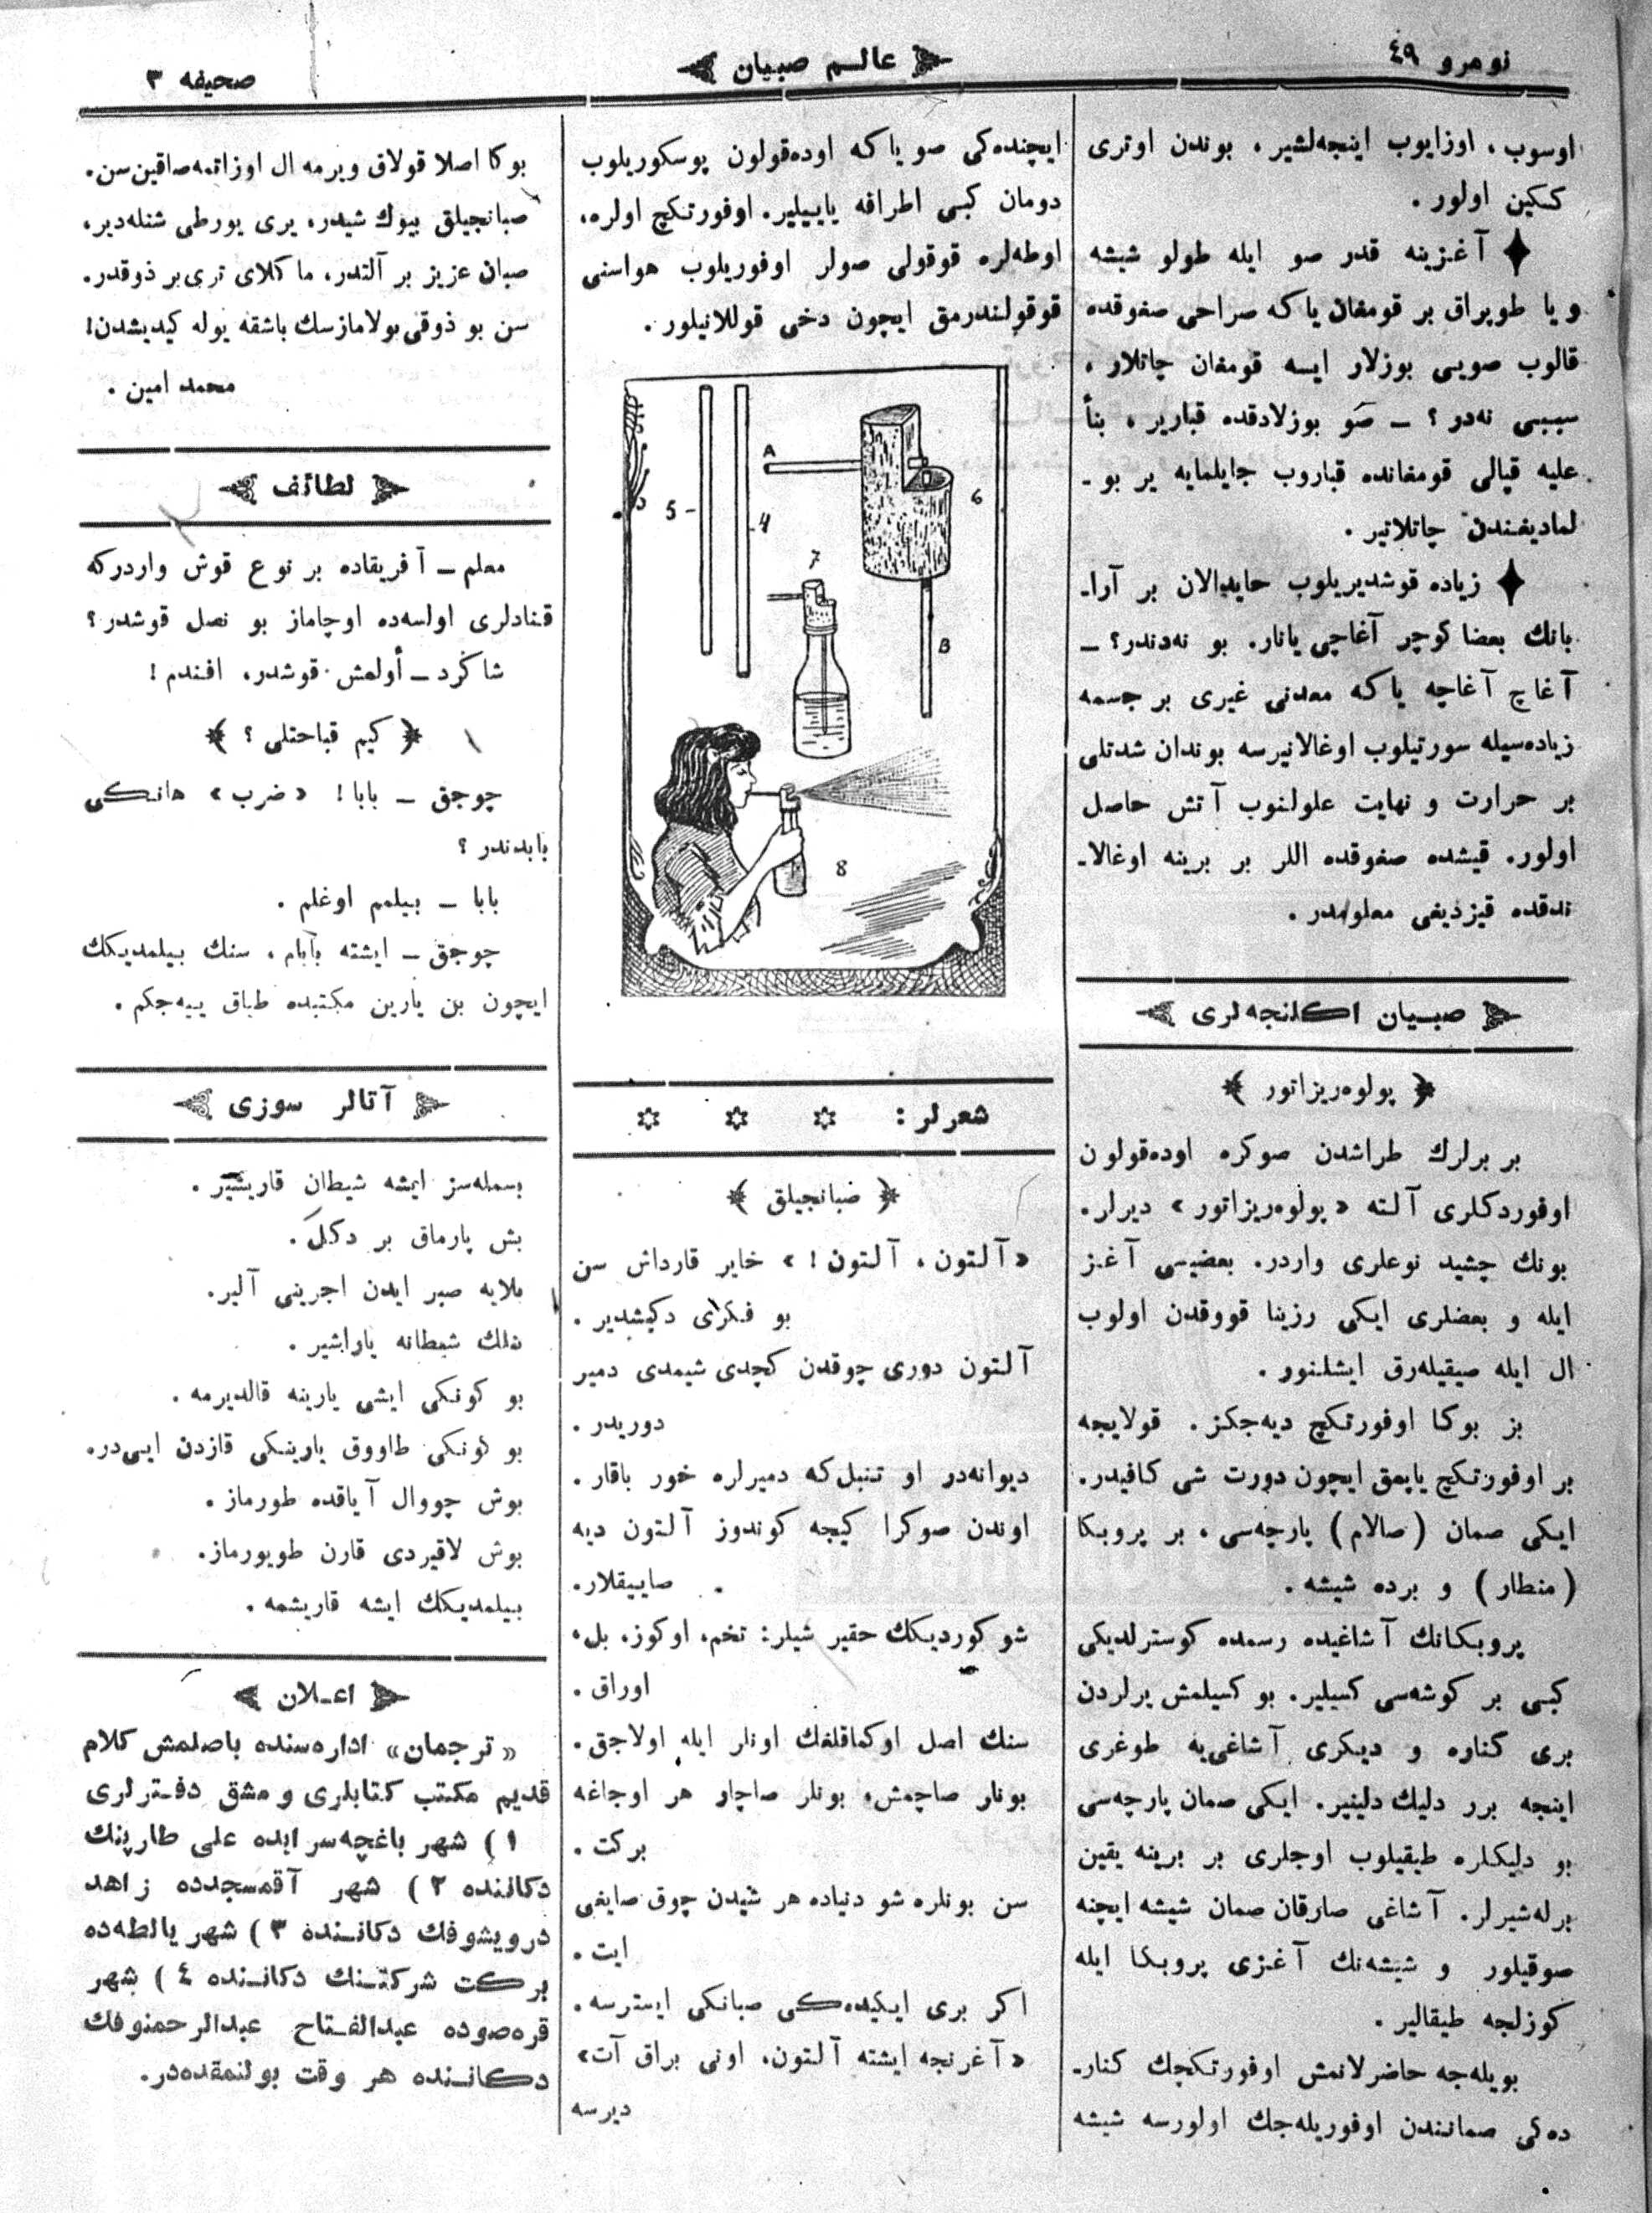 نومرو ٤٩
عالم صبيان
صحيفه ٣
اوسوب، اوزايوب اينجه‌لشير، بوندن اوترى
كسكين اولور.
آغزينه قدر صو ايله طولو شيشه
و يا طوپراق بر قومغان ياكه صراحى صغوقده
قالوب صويى بوزلار ايسه قومغان چاتلار،
سببى نه‌دو؟ ـ صو بوزلادقده قبارير، بنأ
عليه قپالى قومغانده قباروب جايلمايه ير بو ـ
لماديغندن چاتلاتير.
زياده قوشديريلوب حايدالان بر آرا ـ
بانك بعضا كوچر آغاچى يانار. بو نه‌دندر؟ ـ
آغاچ آغاچه ياكه معدنى غيرى بر جسمه
زياده‌سيله سورتيلوب اوغالانيرسه بوندان شدتلى
بر حرارت و نهايت علولنوب آتش حاصل
اولور. قيشده صغوقده اللر بر برينه اوغالا ـ
ندقده قيزديغى معلومدر.
صبيان اكلنجه‌لرى
پولوه‌ريزاتور
بربرلرك طراشدن صوكره اوده‌قولون
اوفوردكلرى آلته «پولوه‌ريزاتور» ديرلر.
بونك چشيد نوعلرى واردر. بعضيسى آغز
ايله و بعضلرى ايكى رزينا قووقدن اولوب
ال ايله صيقيله‌رق ايشلنور.
بز بوكا اوفورتكچ ديه‌جكز. قولايجه
بر اوفورتكچ ياپمق ايچون دورت شى كافيدر.
ايكى صمان (صالام) پارچه‌سى، بر پروبكا
(منطار) و برده شيشه.
پروبكانك آشاغيده رسمده كوسترلديكى
كبى بر كوشه‌سى كسيلير. بو كسيلمش يرلردن
برى كناره و ديكرى آشاغى‌يه طوغرى
اينجه برر دليك دلينير. ايكى صمان پارچه‌سى
بو دليكلره طيقيلوب اوجلرى بر برينه يقين
يرله‌شيرلر. آشاغى صارقان صمان شيشه ايچنه
صوقيلور و شيشه‌نك آغزى پروبكا ايله
كوزلجه طيقالير.
بويله‌جه حاضرلانمش اوفورتكچك كنار ـ
ده‌كى صماندن اوفوريله‌جك اولورسه شيشه
ايچنده‌كى صو ياكه اوده‌قولون پوسكوريلوب
دومان كبى اطرافه ياييلير. اوفورتكچ اولره،
اوطه‌لره قوقولى صولر اوفوريلوب هواسنى
قوقولندرمق ايچون دخى قوللانيلور.
A
5 -
4
6
7
B
8
شعرلر:
صبانجيلق
«آلتون، آلتون!» خاير قارداش سن
بو فكراى دكيشدير.
آلتون دورى چوقدن كچدى شيمدى دمير
دوريدر.
ديوانه‌در او تنبل كه دميرلره خور باقار.
اوندن صوكرا كيجه كوندوز آلتون ديه
صاييقلار.
شو كورديكك حقير شيلر: تخم، اوكوز، بل،
اوراق.
سنك اصل اوكماقلغك اونلر ايله اولاجق.
بونار صاچمش، بونلر صاچار هر اوجاغه
بركت.
سن بونلره شو دنياده هر شيدن چوق صايغى
ايت.
اكر برى ايكيده‌كى صبانكى ايسترسه.
«آغرنجه ايشته آلتون، اونى براق آت»
ديرسه
بوكا اصلا قولاق ويرمه ال اوزاتمه صاقين سن.
صبانجيلق بيوك شيدر، يرى يورطى شنله‌دير،
صبان عزيز بر آلتدر، ماكلاى ترى بر ذوقدر.
سن بو ذوقى بولامازسك باشقه يوله كيديشدن!
محمد امين.
لطائف
معلم ـ آفريقاده بر نوع قوش واردركه
قنادلرى اولسه‌ده اوچاماز بو نصل قوشدر؟
شاكرد ـ أولمش قوشدر، افندم!
كيم قباحتلى؟
چوجق ـ بابا! «ضرب» هانكى
بابدندر؟
بابا ـ بيلمم اوغلم.
چوجق ـ ايشته بابام، سنك بيلمديكك
ايچون بن يارين مكتبده طباق ييه‌جكم.
آتالر سوزى
بسمله‌سز ايشه شيطان قاريشير.
بش پارماق بر دكل.
بلايه صبر ايدن اجرينى آلير.
شيطانه ياراشير.
بو كونكى ايشى يارينه قالديرمه.
بو كونكى طاووق يارينكى قازدن ايى‌در.
بوش چووال آياقده طورماز.
بوش لاقيردى قارن طويورماز.
بيلمديكك ايشه قاريشمه.
اعلان
«ترجمان» اداره‌سنده باصلمش كلام
قديم مكتب كتابلرى و مشق دفترلرى
١) شهر باغچه‌سرايده على طارپنك
دكاننده ٢) شهر آقمسجدده زاهد
درويشوفك دكاننده ٣) شهر يالطه‌ده
بركت شركتنك دكاننده ٤) شهر
قره‌صوده عبدالفتاح عبدالرحمنوفك
دكاننده هر وقت بولنمقده‌در.